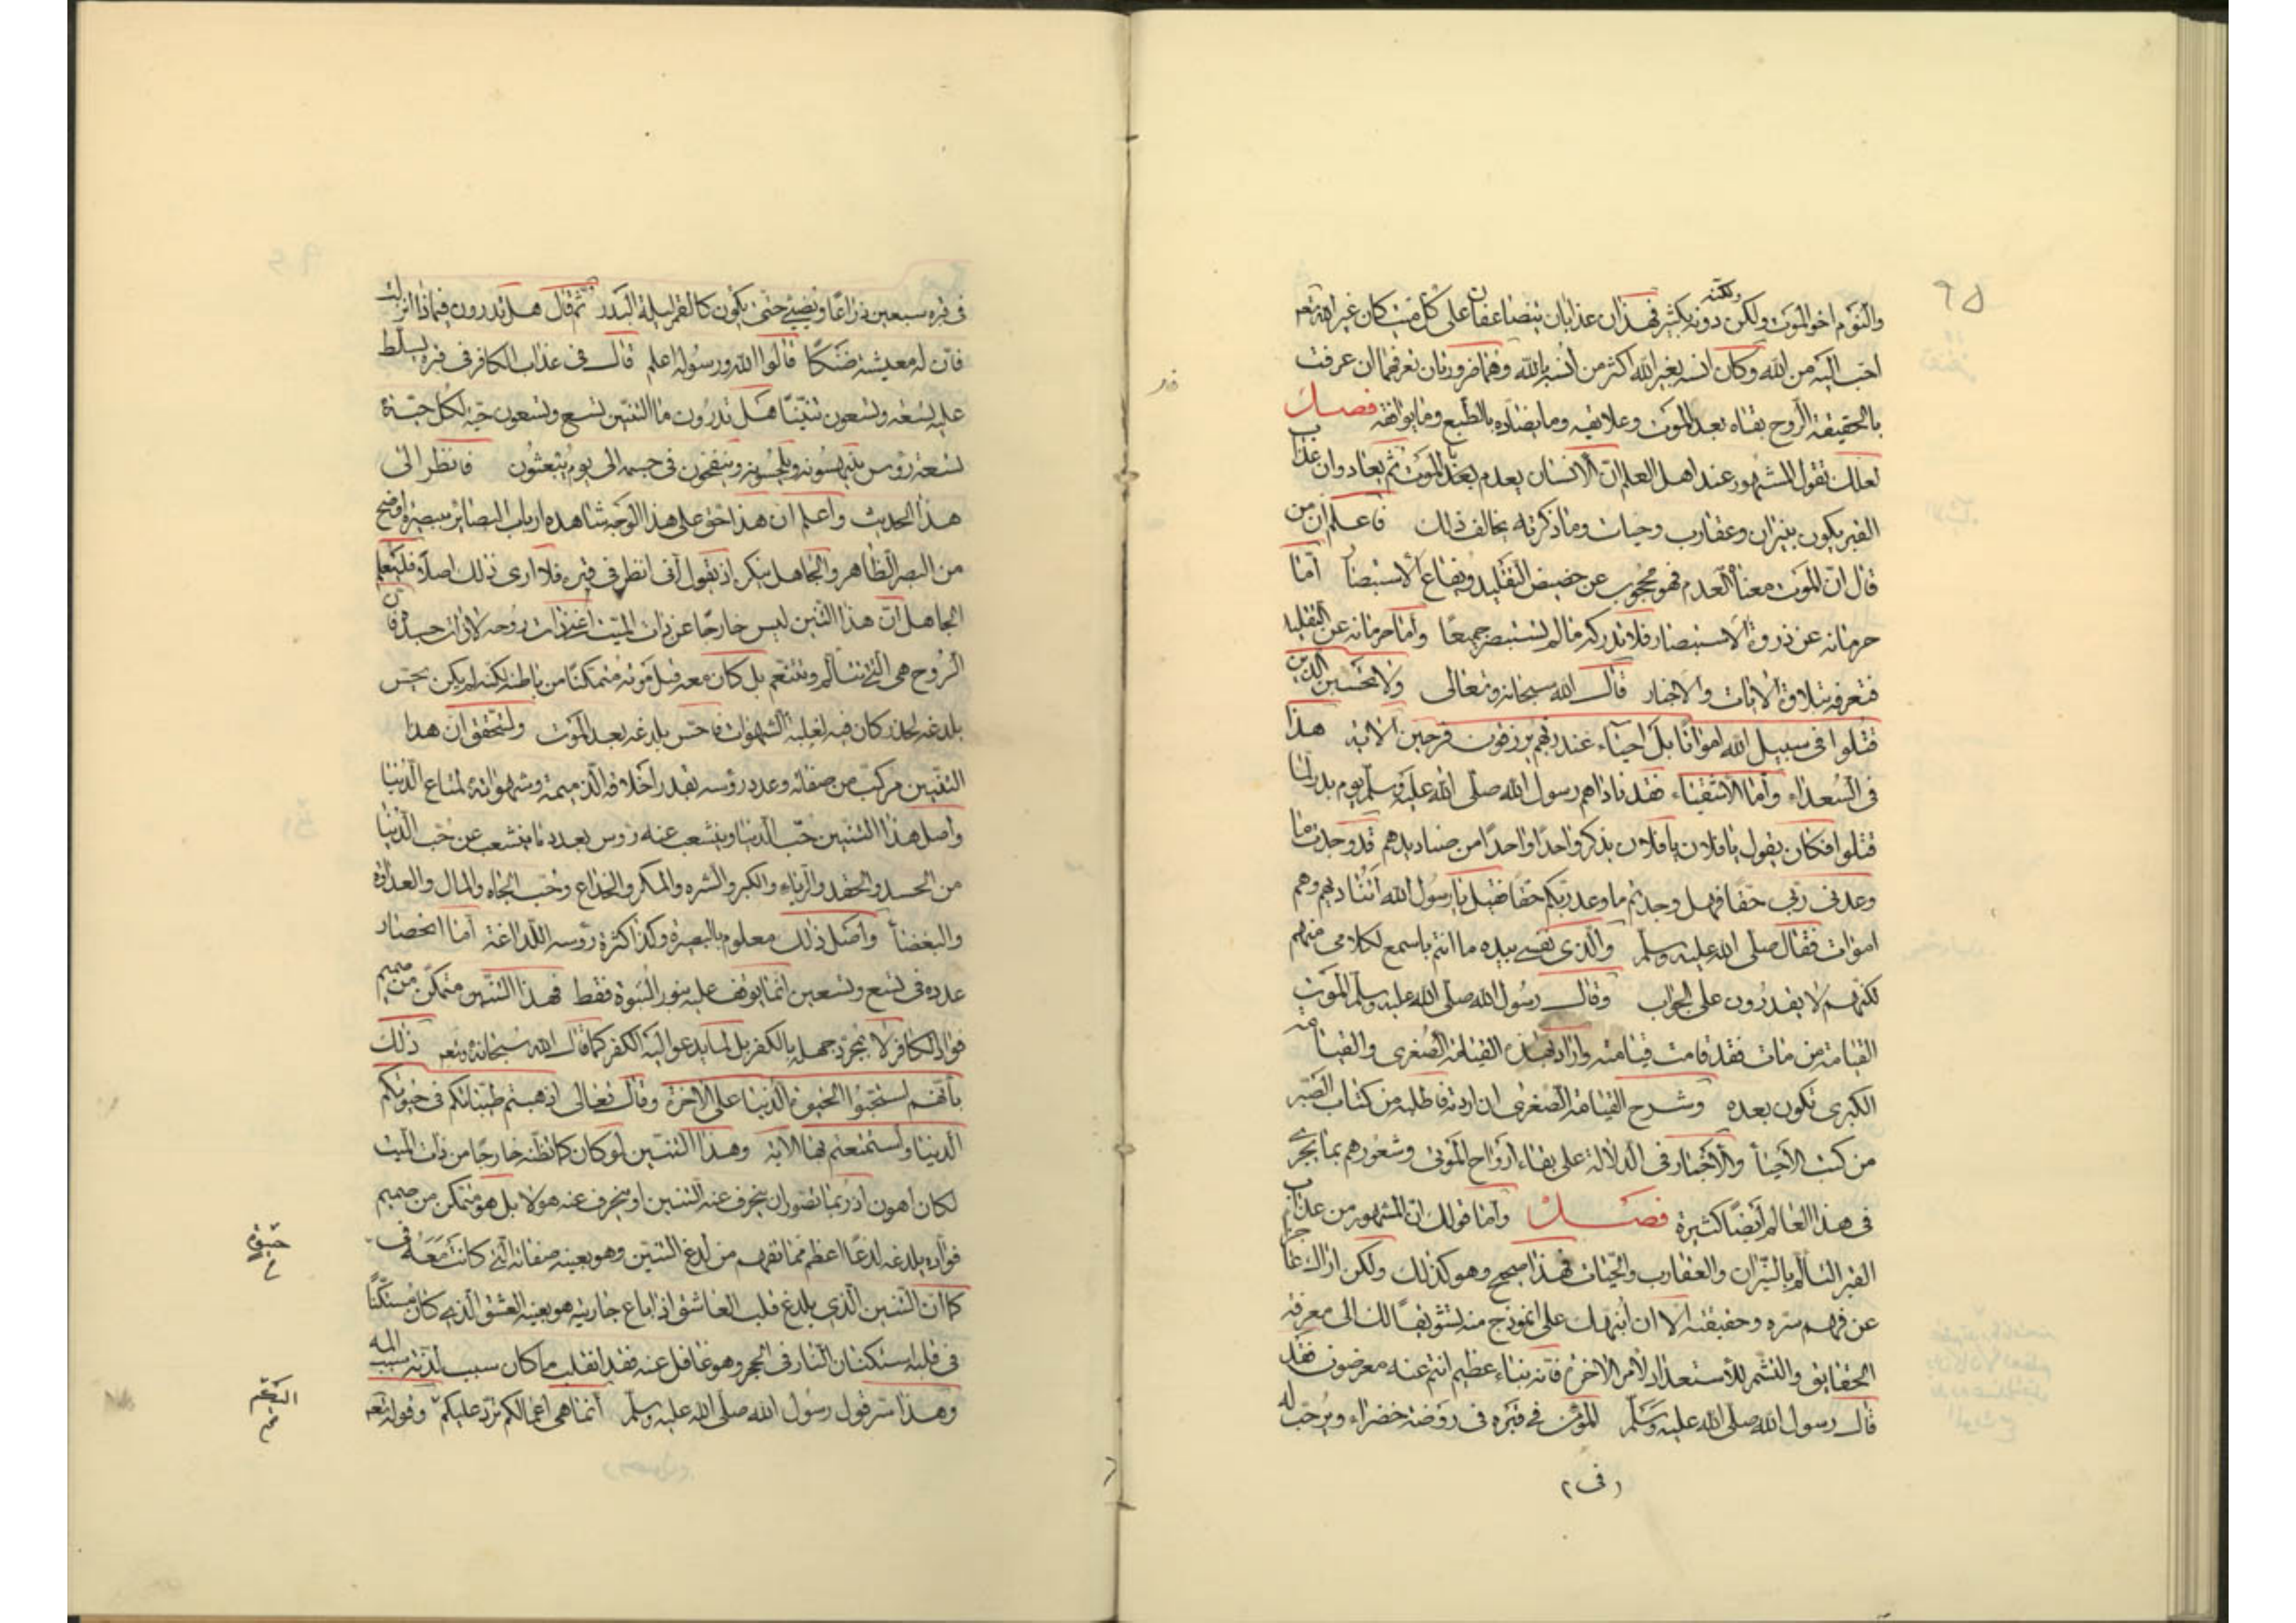 ٩٥
والنوم اخو الموت ولكن دونه بكثير فهذان عذابان يتضاعفان على كل ميت كان غير الله تعه
ولكنه
احب اليه من الله وكان انسه بغير الله اكثر من انسه بالله وهما ضروريان تعرفهما ان عرفت
بالحقيقة الروح بقاه بعد الموت وعلايقه وما يضاده بالطبع وما يوافقه فصل
لعلك تقول المشهور عند اهل العلم ان الانسان يعدم بعد الموت ثم يعاد وان عذاب
القبر يكون بنيران وعقارب وحيات وما ذكرته يخالف ذلك فاعلم ان من
قال ان الموت معناه العدم فهو محجوب عن حضيض التقليد ويفاع الاستبصار اما
حرمانه عن ذروة الاستبصار فلا تدركه مالم تستبصر جميعا واما حرمانه عن التقليد
فتعرفه بتلاوة الايات والاخبار قال الله سبحانه وتعالى ولا تحسبن الذين
قتلوا فى سبيل الله امواتا بل احياء عند ربهم يرزقون فرحين الاية هذا
فى السعداء واما الاشقياء فقد ناداهم رسول الله صلى الله عليه وسلم يوم بدر لما
قتلوا فكان يقول يا فلان يا فلان يذكر واحدا واحدا من صناديدهم قد وجدت ما
وعدنى ربى حقا فهل وجدتم ما وعد ربكم حقا فقيل يا رسول الله اتناديهم وهم
اموات فقال صلى الله عليه وسلم والذى نفسى بيده ما انتم باسمع لكلامى منهم
لكنهم لا يقدرون على الجواب وقال رسول الله صلى الله عليه وسلم الموت
القيامة من مات فقد قامت قيامته واراد بهذه القيامة الصغرى والقيامة
الكبرى تكون بعده وشرح القيامة الصغرى ان اردته فاطلبه من كتاب الصبر
من كتب الاحيا والاخبار فى الدلالة على بقاء ارواح الموتى وشعورهم بما يجرى
فى هذا العالم ايضا كثيرة فصل واما قولك ان المشهور من عذاب
القبر التالم بالنيران والعقارب والحيات فهذا صحيح وهو كذلك ولكن اراك عاجزا
عن فهم سره وحقيقته الا ان انبهك على انموذج منه تشويقا لك الى معرفة
الحقايق والتشمر للاستعداد لامر الاخرة فانه نباء عظيم انتم عنه معرضون فقد
قال رسول الله صلى الله عليه وسلم المؤمن فى قبره فى روضة خضراء ويرحب له
فى
فى قبره سبعين ذراعا ويضيء حتى يكون كالقمر ليلة البدر ثم قال هل تدرون فيماذا انزلت
فان له معيشة ضنكا قالوا الله ورسوله اعلم قال فى عذاب الكافر فى قبره يسلط
عليه تسعة وتسعون تنينا هل تدرون ما التنين تسع وتسعون حية لكل حية
تسعة رؤس ينهسونه ويلحسونه وينفخون فى جسمه الى يوم يبعثون فانظر الى
هذا الحديث واعلم ان هذا حق على هذا الوجه شاهده ارباب البصائر ببصيرة اوضح
من البصر الظاهر والجاهل ينكر اذ يقول انى انظر فى قبره فلا ارى ذلك اصلا فليعلم
الجاهل ان هذا التنين ليس خارجا عن ذات الميت اعنى ذات روحه لا ذات جسده فان
الروح هى التى تتالم وتتنعم بل كان معه قبل موته متمكنا من باطنه لكنه لم يكن يحس
بلدغه لخدر كان فيه لغلبة الشهوات فاحس بلدغه بعد الموت ولتتحقق ان هذا
التنين مركب من صفاته وعدد رؤسه بقدر اخلاقه الذميمة وشهواته لمتاع الدنيا
واصل هذا التنين حب الدنيا ويتشعب عنه رؤس بعدد ما يتشعب عن حب الدنيا
من الحسد والحقد والرياء والكبر والشره والمكر والخداع وحب الجاه والمال والعداوة
والبغضا واصل ذلك معلوم بالبصيرة وكذا كثرة رؤسه اللداغة اما انحصار
عدده فى تسع وتسعين انما يوقف عليه بنور النبوة فقط فهذا التنين متمكن من صميم
فواد الكافر لا بمجرد جهله بالكفر بل لما يدعو اليه الكفر كما قال الله سبحانه وتعه ذلك
بانهم استحبوا الحيوة الدنيا على الاخرة وقال تعالى اذهبتم طيباتكم فى حيوتكم
الدنيا واستمتعتم بها الاية وهذا التنين لو كان كما تظنه خارجا من ذات الميت
لكان اهون اذ ربما يتصور ان ينحرف عنه التنين او ينحرف عنه هو لا بل هو متمكن من صميم
فواده يلدغه لدغا اعظم مما تفهمه من لدغ التنين وهو بعينه صفاته التى كانت معه فى
حيوته
كما ان التنين الذى يلدغ قلب العاشق اذا باع جاريته هو بعينه العشق الذى كان مستكنا
فى قلبه استكنان النار فى الحجر وهو غافل عنه فقد انقلب ما كان سبب لذته سبب المه
وهذا سر قول رسول الله صلى الله عليه وسلم انما هى اعمالكم ترد عليكم وقوله تعه